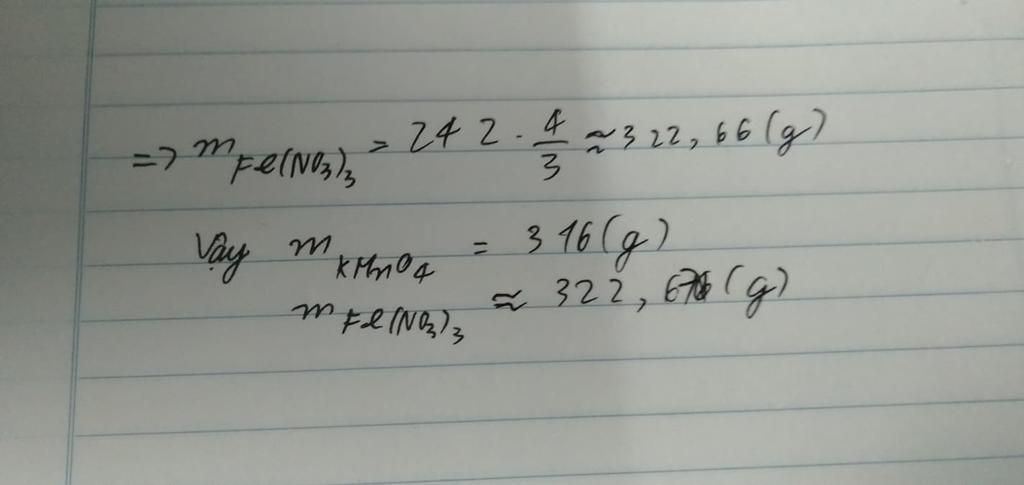 => m Fe(NO3)3 = 242 . 4/3 ≈ 322,66 (g)
Vậy m KMnO4 = 316 (g)
m Fe(NO3)3 ≈ 322, (g)